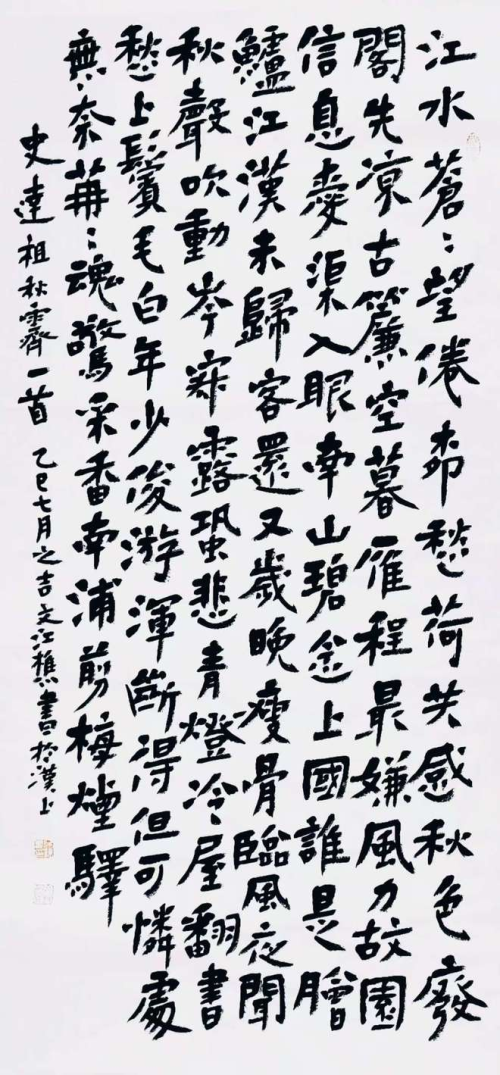 江水蒼〻望倦柳愁荷共感秋色廢
閣先凉古簾空暮雁程最嫌風力故園
信息愛渠入眼南山碧念上國誰是膾
鱸江漢未歸客還又歲晚瘦骨臨風夜聞
秋聲吹動岑寂露蛩悲青燈冷屋翻書
愁上鬢毛白年少俊游渾斷得但可憐處
無奈苒〻魂驚采香南浦剪梅煙驛
史達祖秋霽一首 乙巳七月之吉文江樵書於漢上